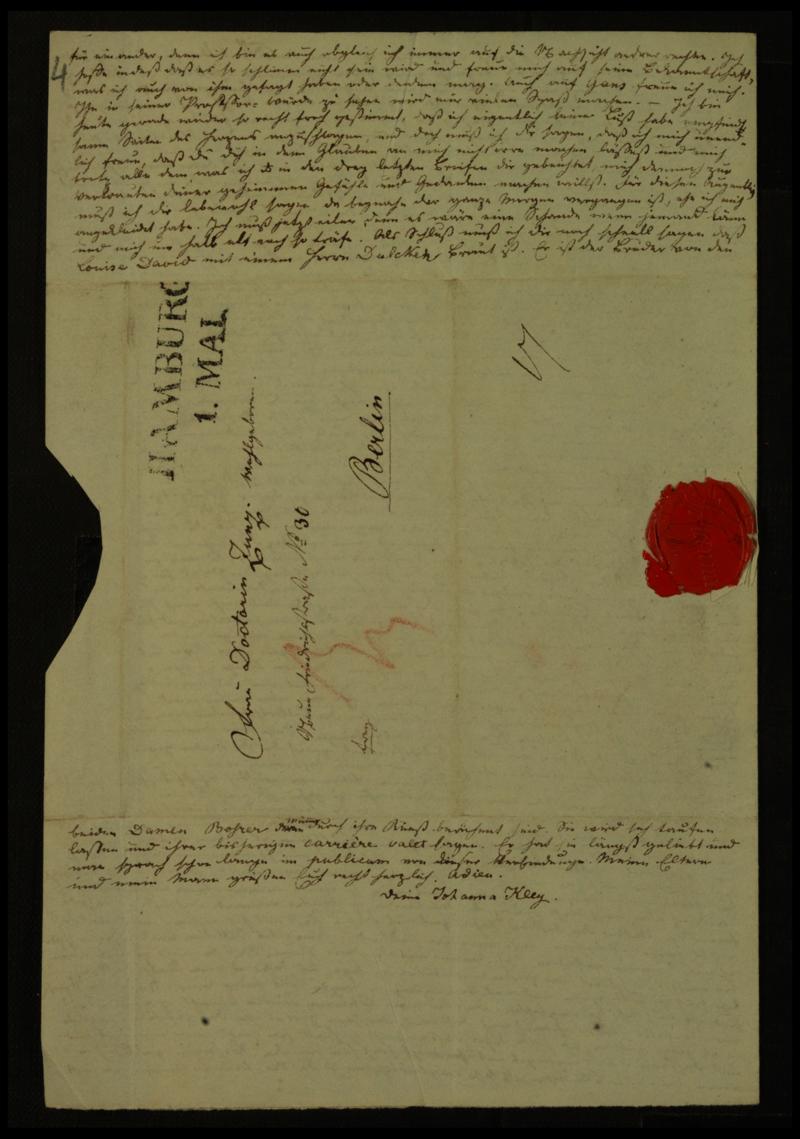 4
für einander, denn ich bin es auch obgleich ich immer auf die Nachsicht andrer rechne. Ich
hoffe indeß daß es so schlimm nicht sein wird und freue mich auf seine Bekanntschaft,
was ich auch von ihm gesagt haben oder denken mag. Auch auf Gans freue ich mich.
Ihn in seiner Professor-Würde zu sehen wird mir einen Spaß machen. — Ich bin
heute gerade wieder so recht froh gestimmt, daß ich eigentlich keine Lust habe empfind-
same Saiten des Herzens anzuschlagen, und doch muß ich Dir sagen, daß ich mich unend-
lich freue, daß Du Dich in dem Glauben an mich nicht irre machen läßest und mich
trotz alle dem was ich in den drey letzten Briefen dir gebeichtet, mich dennoch zur
Vertrauten deiner geheimsten Gefühle und Gedanken machen willst. Für diesen Augenblick
muß ich dir lebewohl sagen da beynahe der ganze Morgen vergangen ist, ehe ich mich
angekleidet habe. Ich muß jetzt eilen, denn es wäre eine Schande wenn jemand käme
und mich um halb elf noch so träfe. Als Schluß muß ich dir noch schnell sagen daß
Louise David mit einem Herrn Dulcken Braut ist. Er ist der Bruder von den
HAMBURG
1. MAI
Frau Doctorin Zunz. Wohlgeboren.
Neue Friedrichsstraße No 30
Berlin
frey
beiden Damen Bohrer die durch ihre Kunst berühmt sind. Sie wird sich taufen
laßen und ihrer bisherigen carrière valet sagen. Er hat sie längst geliebt und
man sprach schon lange im publicum von dieser Verbindung. Meine Eltern
und mein Mann grüßen Euch recht herzlich. Adieu.
Deine Johanna Kley.